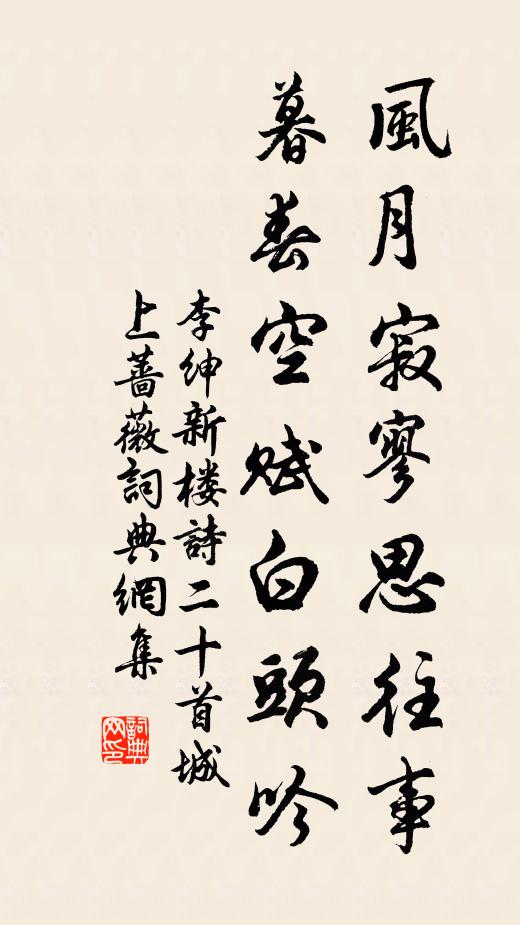 風月寂寥思往事
暮春空賦白頭吟
李紳新楼詩二十首城
上薔薇詞典網集
詞典网印